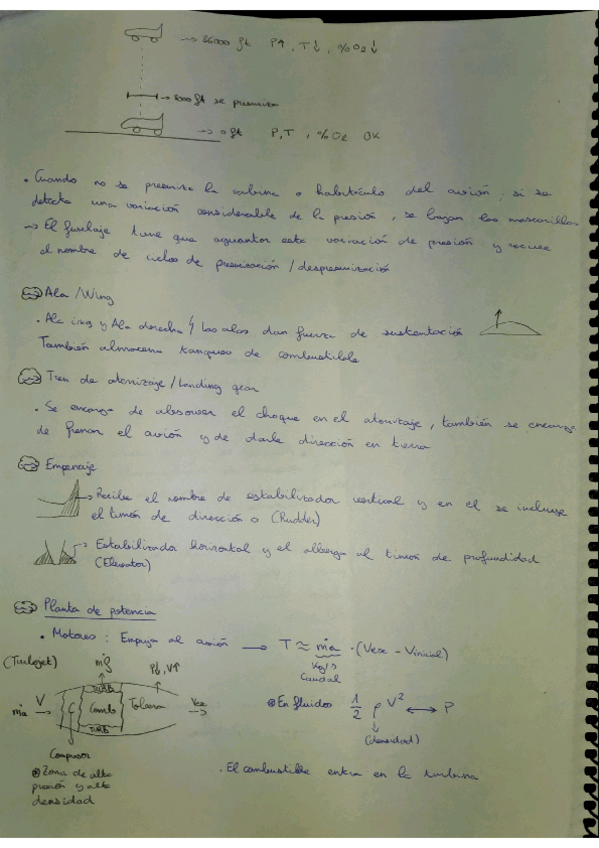 → 36000 ft P↑, T↓, %O2↓
→ 8000 ft se presuriza
→ 0 ft P,T, %O2 OK
• Cuando no se presuriza la cabina o habitáculo del avión, si se
detecta una variación considerable de la presión, se bajan las mascarillas
→ El fuselaje tiene que aguantar esta variación de presión y recibe
el nombre de ciclos de presurización / despresurización
Ala / Wing
• Ala izq y Ala derecha las alas dan fuerza de sustentación
También almacena tanques de combustible
Tren de aterrizaje / Landing gear
• Se encarga de absorver el choque en el aterrizaje, también se encarga
de frenar el avión y de darle dirección en tierra
Empenaje
→ Recibe el nombre de estabilizador vertical y en el se incluye
el timón de dirección o (Rudder)
→ Estabilizador horizontal y el alberga al timón de profundidad
(Elevator)
Planta de potencia
• Motores: Empuja al avión → T ≈ ṁa · (Vexe - Vinicial)
Kg/s
Caudal
(Turbojet)
P↓, V↑
ṁa V → C TURB Comb TURB Tobera Vex →
⊛ En fluidos 1/2 ρ V² ↔ P
(densidad)
Compresor
⊛ Zona de alta
presión y alta
densidad
• El combustible entra en la turbina